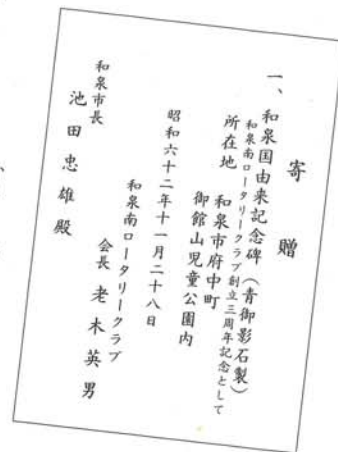 寄贈
一、和泉国由来記念碑(青御影石製)
和泉南ロータリークラブ創立三周年記念として
所在地 和泉市府中町
御館山児童公園内
昭和六十二年十一月二十八日
和泉南ロータリークラブ
会長 老木英男
和泉市長
池田忠雄殿